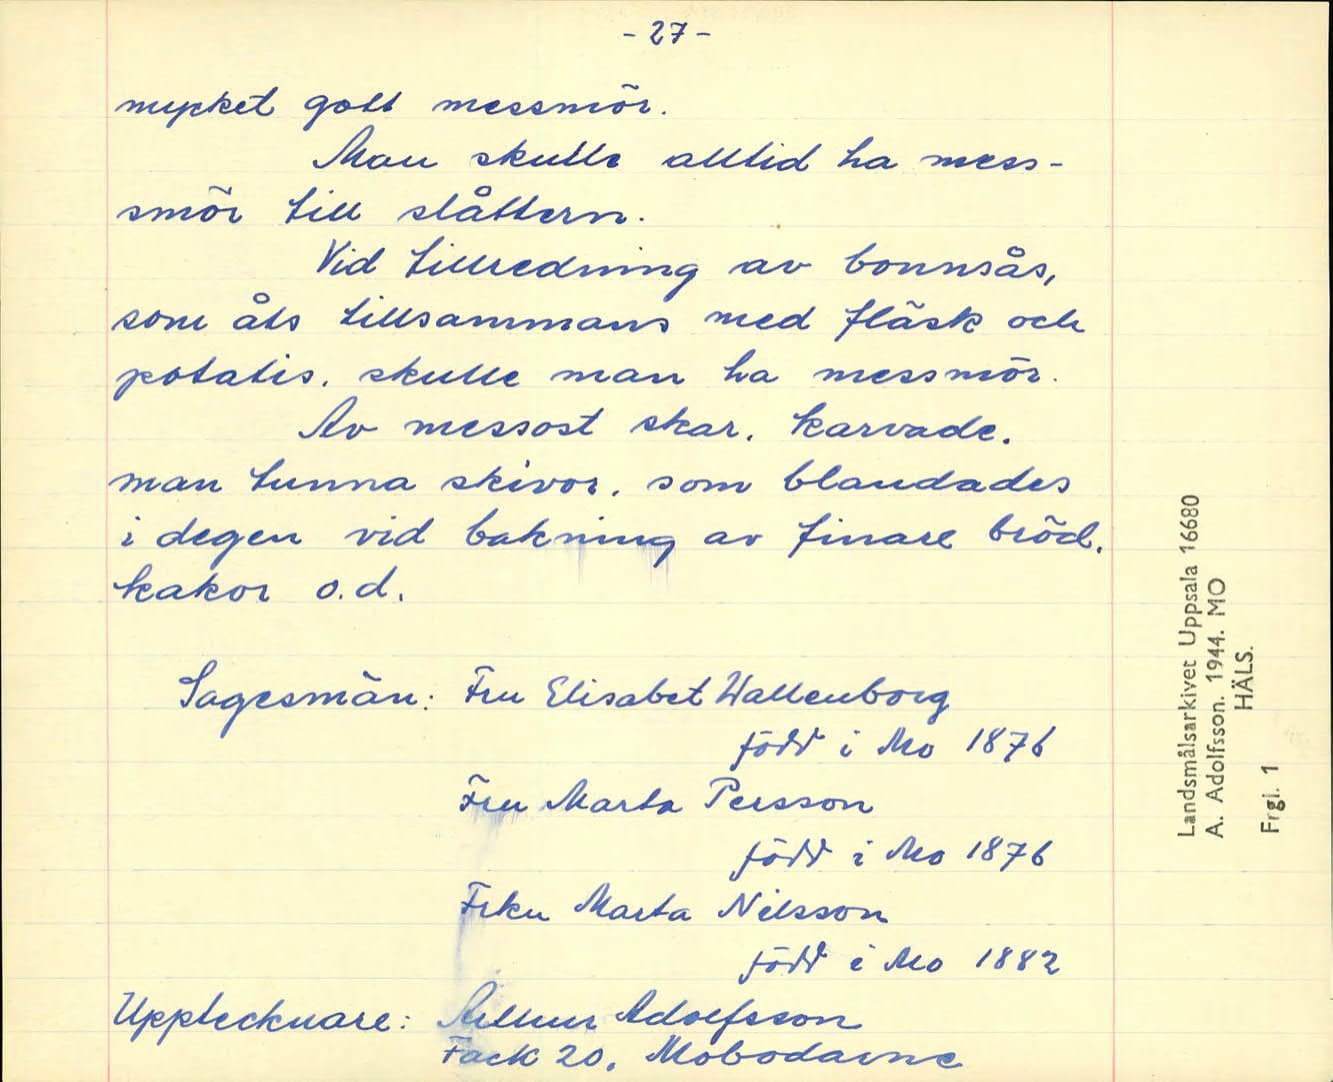 - 27 -
mycket gott messmör.
Man skulle alltid ha mess-
smör till slåttern.
Vid tillredning av bonnsås,
som åts tillsammans med fläsk och
potatis, skulle man ha messmör.
Av messost skar, karvade,
man tunna skivor, som blandades
i degen vid bakning av finare bröd,
kakor o.d.
Sagesmän: Fru Elisabet Wallenborg
född i Mo 1876
Fru Marta Persson
född i Mo 1876
Frkn Marta Nilsson
född i Mo 1882
Upptecknare: Arthur Adolfsson
Fack 20, Mobodarne
Landsmålsarkivet Uppsala 16680
A. Adolfsson. 1944. MO
HÄLS.
Frgl. 1